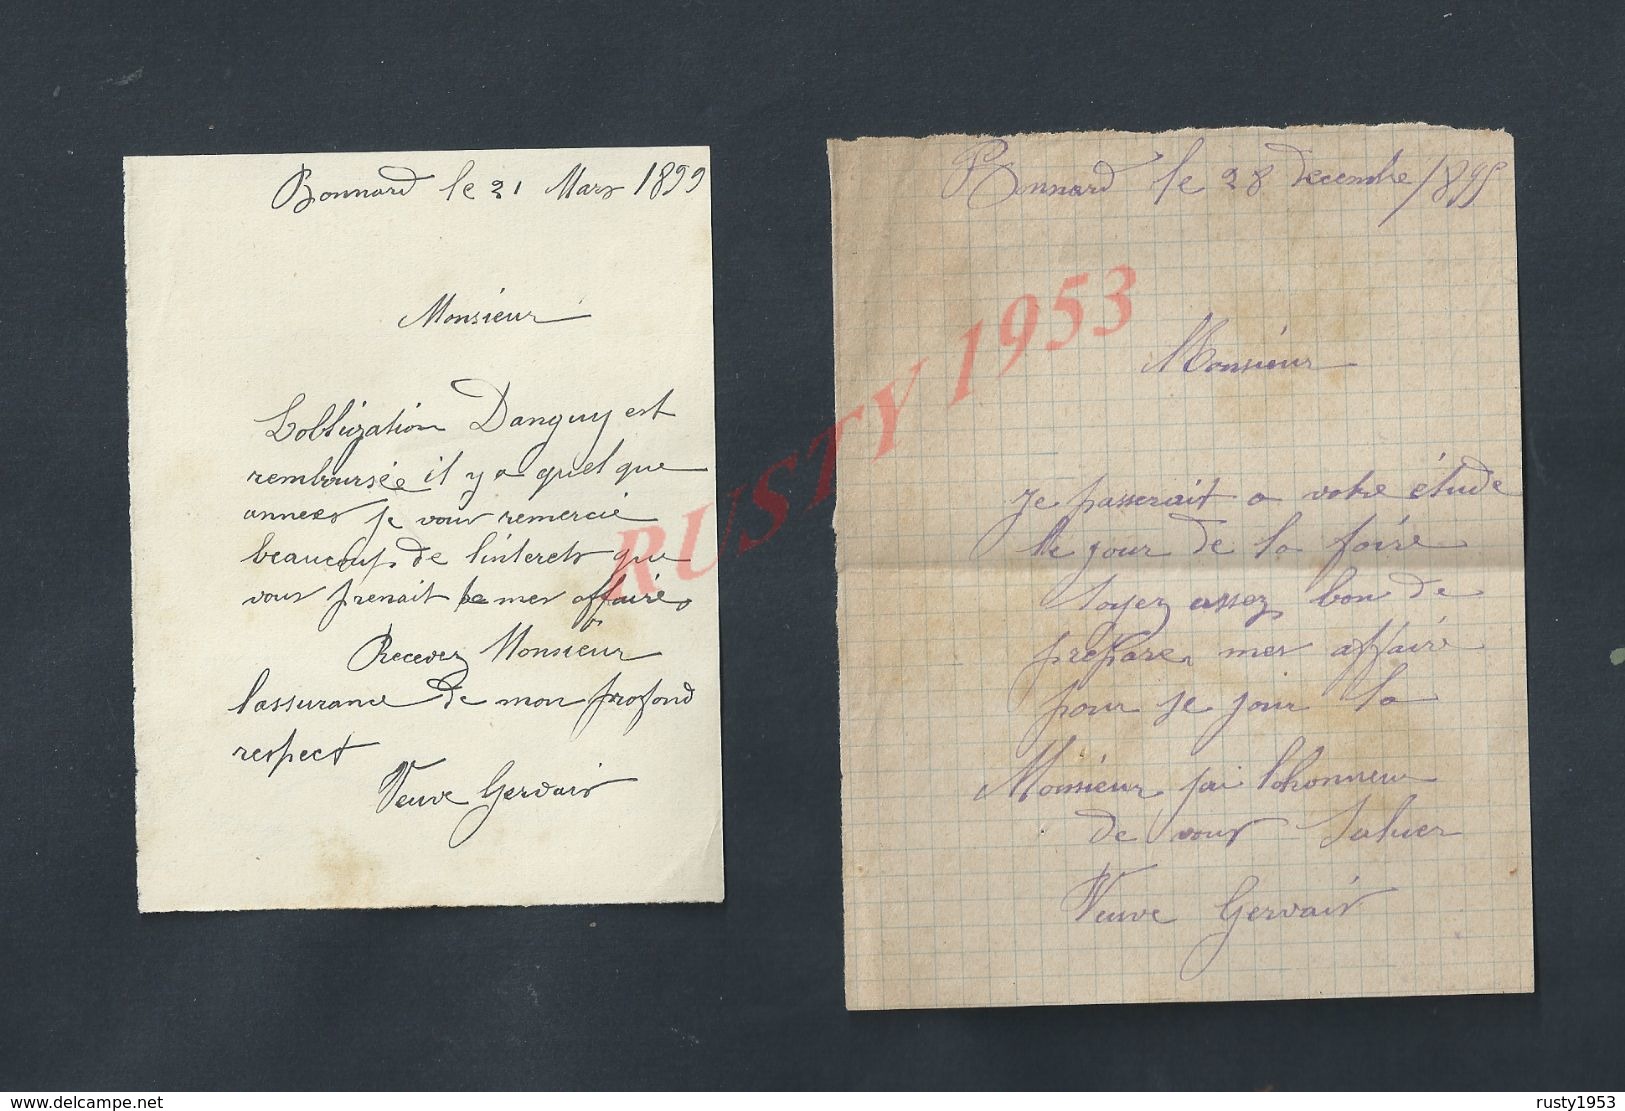 Bonnard le 21 Mars 1899
Monsieur
Lobligation Danguy est
remboursée il y a quel que
annees je vous remercie
beaucoup de linterets que
vous prenait de mes affaire
Recevez Monsieur
lassurance de mon profond
respect
Veuve Gervais
Bonnard le 28 decembre 1899
Monsieur
Je passerait a votre étude
le jour de la foire
soyez assez bon de
prépare mes affaire
pour se jour la
Monsieur jai lohonneur
de vous saluer
Veuve Gervais
RUSTY 1953
www.delcampe.net
rusty1953